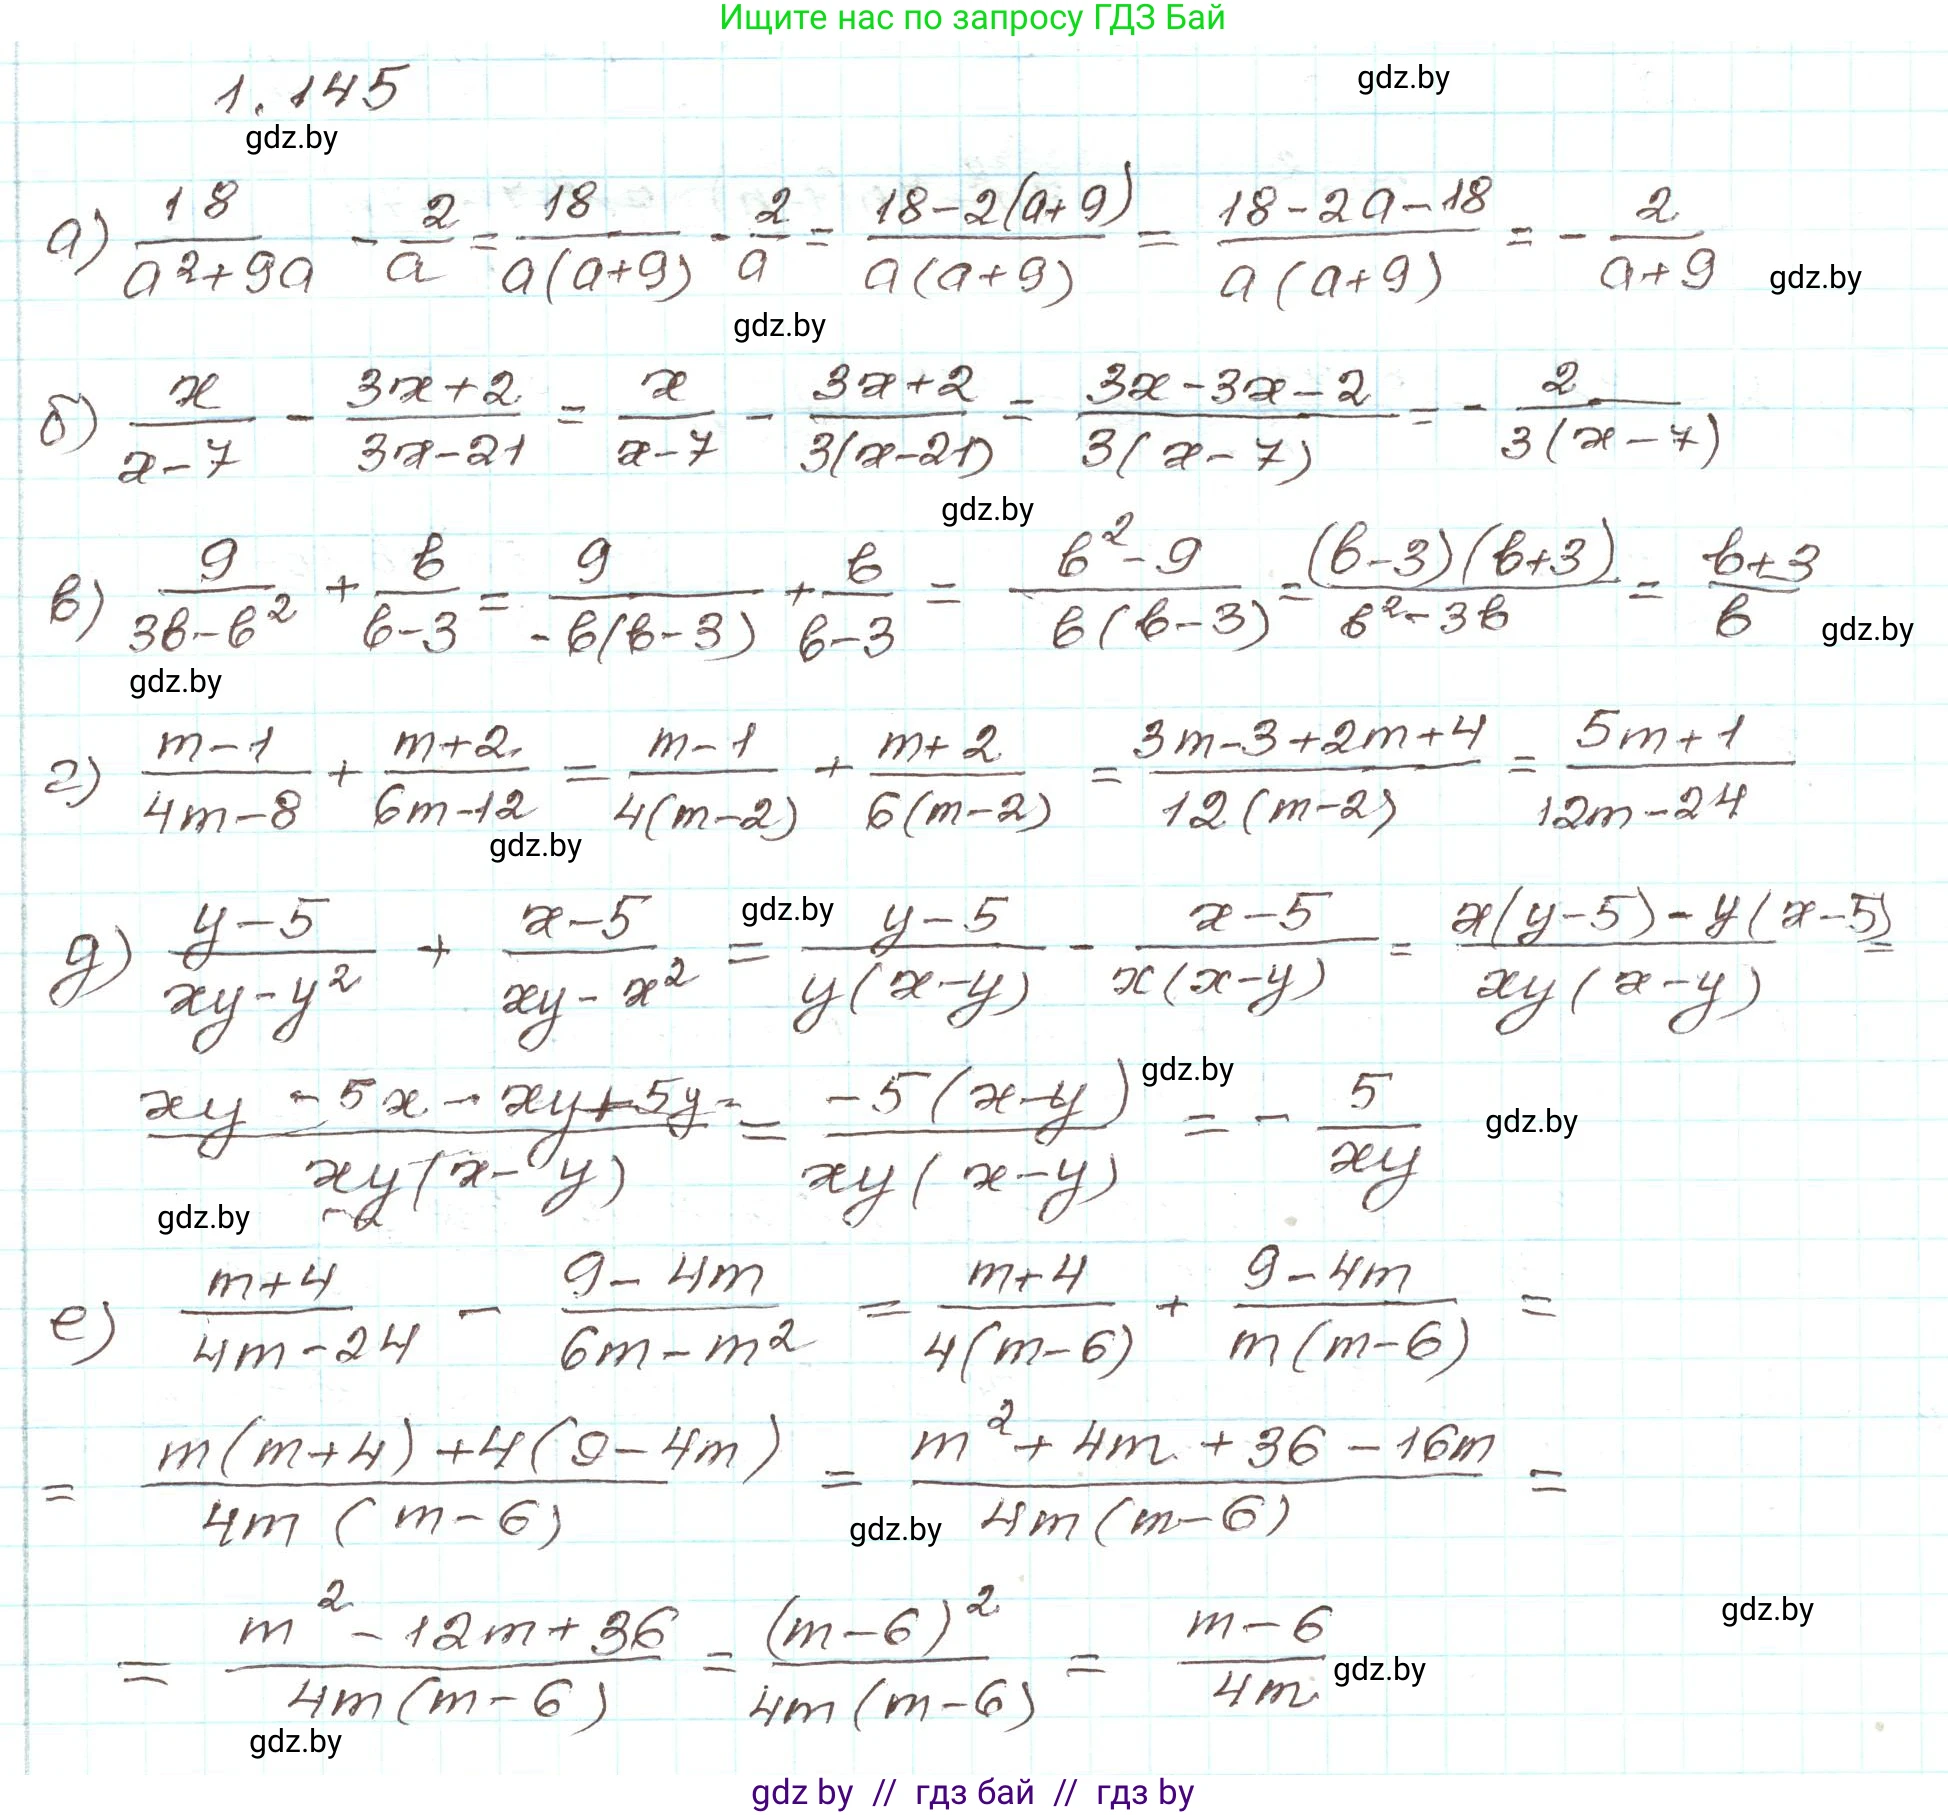 Ищите нас по запросу ГДЗ Бай
1.145
gdz.by
gdz.by
а) 18/(a²+9a) - 2/a = 18/(a(a+9)) - 2/a = (18-2(a+9))/(a(a+9)) = (18-2a-18)/(a(a+9)) = - 2/(a+9)
gdz.by
gdz.by
б) x/(x-7) - (3x+2)/(3x-21) = x/(x-7) - (3x+2)/(3(x-21)) = (3x-3x-2)/(3(x-7)) = - 2/(3(x-7))
gdz.by
в) 9/(3b-b²) + b/(b-3) = 9/(-b(b-3)) + b/(b-3) = (b²-9)/(b(b-3)) = ((b-3)(b+3))/(b²-3b) = (b+3)/b
gdz.by
gdz.by
г) (m-1)/(4m-8) + (m+2)/(6m-12) = (m-1)/(4(m-2)) + (m+2)/(6(m-2)) = (3m-3+2m+4)/(12(m-2)) = (5m+1)/(12m-24)
gdz.by
gdz.by
д) (y-5)/(xy-y²) + (x-5)/(xy-x²) = (y-5)/(y(x-y)) - (x-5)/(x(x-y)) = (x(y-5)-y(x-5))/(xy(x-y)) =
gdz.by
(xy-5x-xy+5y)/(xy(x-y)) = (-5(x-y))/(xy(x-y)) = - 5/(xy)
gdz.by
gdz.by
е) (m+4)/(4m-24) - (9-4m)/(6m-m²) = (m+4)/(4(m-6)) + (9-4m)/(m(m-6)) =
= (m(m+4)+4(9-4m))/(4m(m-6)) = (m²+4m+36-16m)/(4m(m-6)) =
gdz.by
gdz.by
= (m²-12m+36)/(4m(m-6)) = (m-6)²/(4m(m-6)) = (m-6)/(4m)
gdz.by
gdz.by
gdz by // гдз бай // гдз by